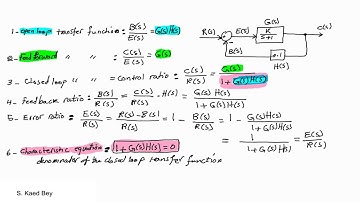 1 - open loop transfer function = B(s)/E(s) = G(s)H(s)
2 - Feed forward " " = C(s)/E(s) = G(s)
3 - Closed loop " " = control ratio : C(s)/R(s) = G(s)/1+G(s)H(s)
4 - feedback ratio : B(s)/R(s) = C(s)/R(s) . H(s) = G(s)H(s)/1+G(s)H(s)
5 - Error ratio : E(s)/R(s) = R(s)-B(s)/R(s) = 1 - B(s)/R(s) = 1 - G(s)H(s)/1+G(s)H(s)
= 1/1+G(s)H(s) = E(s)/R(s)
6 - characteristic equation = 1+G(s)H(s)=0
denominator of the closed loop transfer function
G(s)
R(s) E(s) K/s+1 C(s)
B(s)
H(s)
S. Kaed Bey